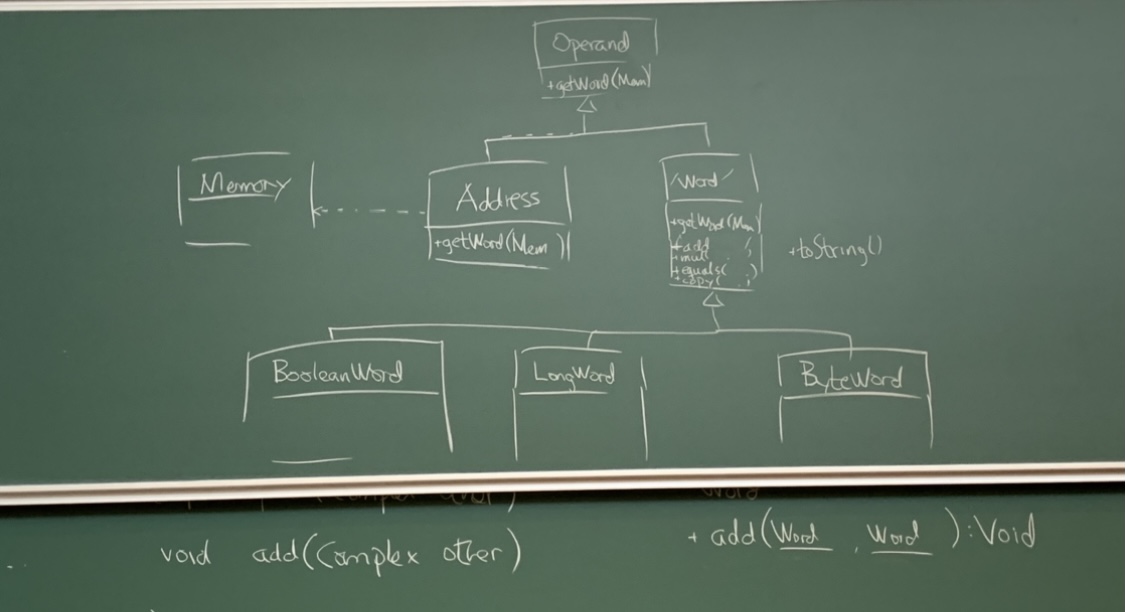 Operand
+getWord(Mem)
Memory
Address
+getWord(Mem)
/Word/
+getWord(Mem)
+add( )
+mul( )
+equals( )
+copy( )
+toString()
BooleanWord
LongWord
ByteWord
void add(Complex other)
+ add(Word, Word):Void